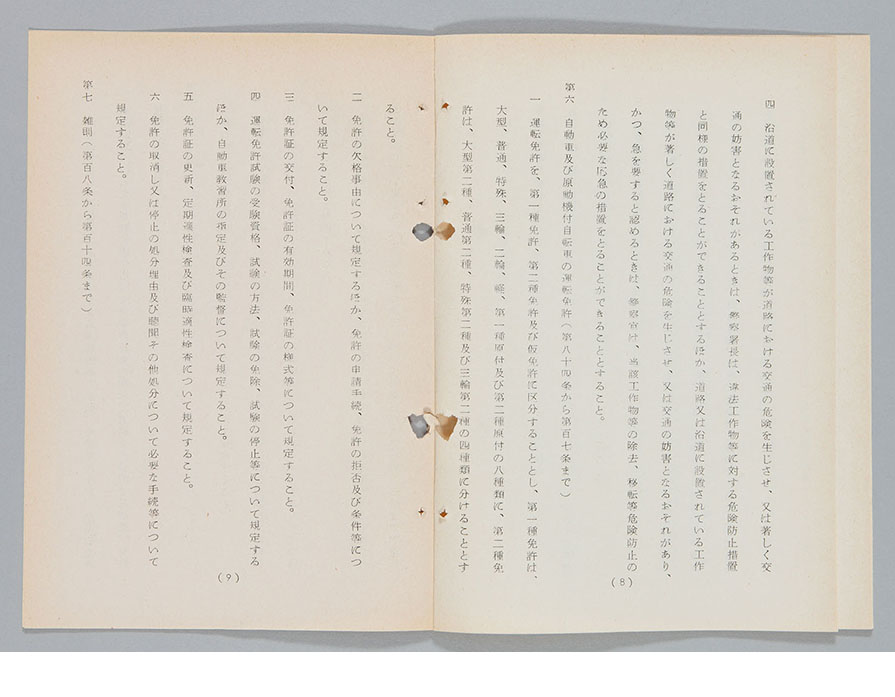 四　沿道に設置されている工作物等が道路における交通の危険を生じさせ、又は著しく交
通の妨害となるおそれがあるときは、警察署長は、違法工作物等に対する危険防止措置
と同様の措置をとることができることとするほか、道路又は沿道に設置されている工作
物等が著しく道路における交通の危険を生じさせ、又は交通の妨害となるおそれがあり、
かつ、急を要すると認めるときは、警察官は、当該工作物等の除去、移転等危険防止の
ため必要な応急の措置をとることができることとすること。
第六　自動車及び原動機付自転車の運転免許（第八十四条から第百七条まで）
一　運転免許を、第一種免許、第二種免許及び仮免許に区分することとし、第一種免許は、
大型、普通、特殊、三輪、二輪、軽、第一種原付及び第二種原付の八種類に、第二種免
許は、大型第二種、普通第二種、特殊第二種及び三輪第二種の四種類に分けることとす
(8)
ること。
二　免許の欠格事由について規定するほか、免許の申請手続、免許の拒否及び条件等につ
いて規定すること。
三　免許証の交付、免許証の有効期間、免許証の様式等について規定すること。
四　運転免許試験の受験資格、試験の方法、試験の免除、試験の停止等について規定する
ほか、自動車教習所の指定及びその監督について規定すること。
五　免許証の更新、定期適性検査及び臨時適性検査について規定すること。
六　免許の取消し又は停止の処分理由及び聴聞その他処分について必要な手続等について
規定すること。
第七　雑則（第百八条から第百十四条まで）
(9)